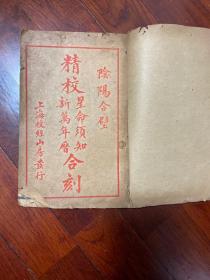 陰陽合璧
精校星命須知新萬年曆合刻
上海校經山房發行